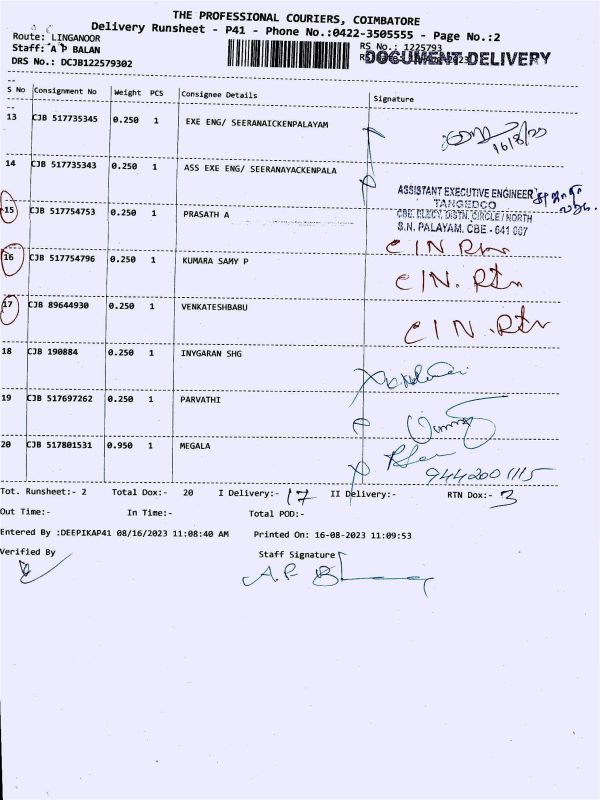 THE PROFESSIONAL COURIERS, COIMBATORE
Delivery Runsheet - P41 - Phone No.:0422-3505555 - Page No.:2
Route: LINGANOOR
RS No.: 1225793
Staff: A P BALAN
DOCUMENT DELIVERY
DRS No.: DCJB122579302
S No Consignment No Weight PCS Consignee Details Signature
13 CJB 517735345 0.250 1 EXE ENG/ SEERANAICKENPALAYAM
16/8/23
14 CJB 517735343 0.250 1 ASS EXE ENG/ SEERANAYACKENPALA
ASSISTANT EXECUTIVE ENGINEER
TANGEDCO
CBE. ELECY. DISTN. CIRCLE / NORTH
S.N. PALAYAM, CBE - 641 007
15 CJB 517754753 0.250 1 PRASATH A
C/N Rtn
16 CJB 517754796 0.250 1 KUMARA SAMY P
C/N. Rtn
17 CJB 89644930 0.250 1 VENKATESHBABU
C/N. Rtn
18 CJB 190884 0.250 1 INYGARAN SHG
19 CJB 517697262 0.250 1 PARVATHI
20 CJB 517801531 0.950 1 MEGALA
9442001115
Tot. Runsheet:- 2 Total Dox:- 20 I Delivery:- 17 II Delivery:- RTN Dox:- 3
Out Time:- In Time:- Total POD:-
Entered By :DEEPIKAP41 08/16/2023 11:08:40 AM Printed On: 16-08-2023 11:09:53
Verified By Staff Signature